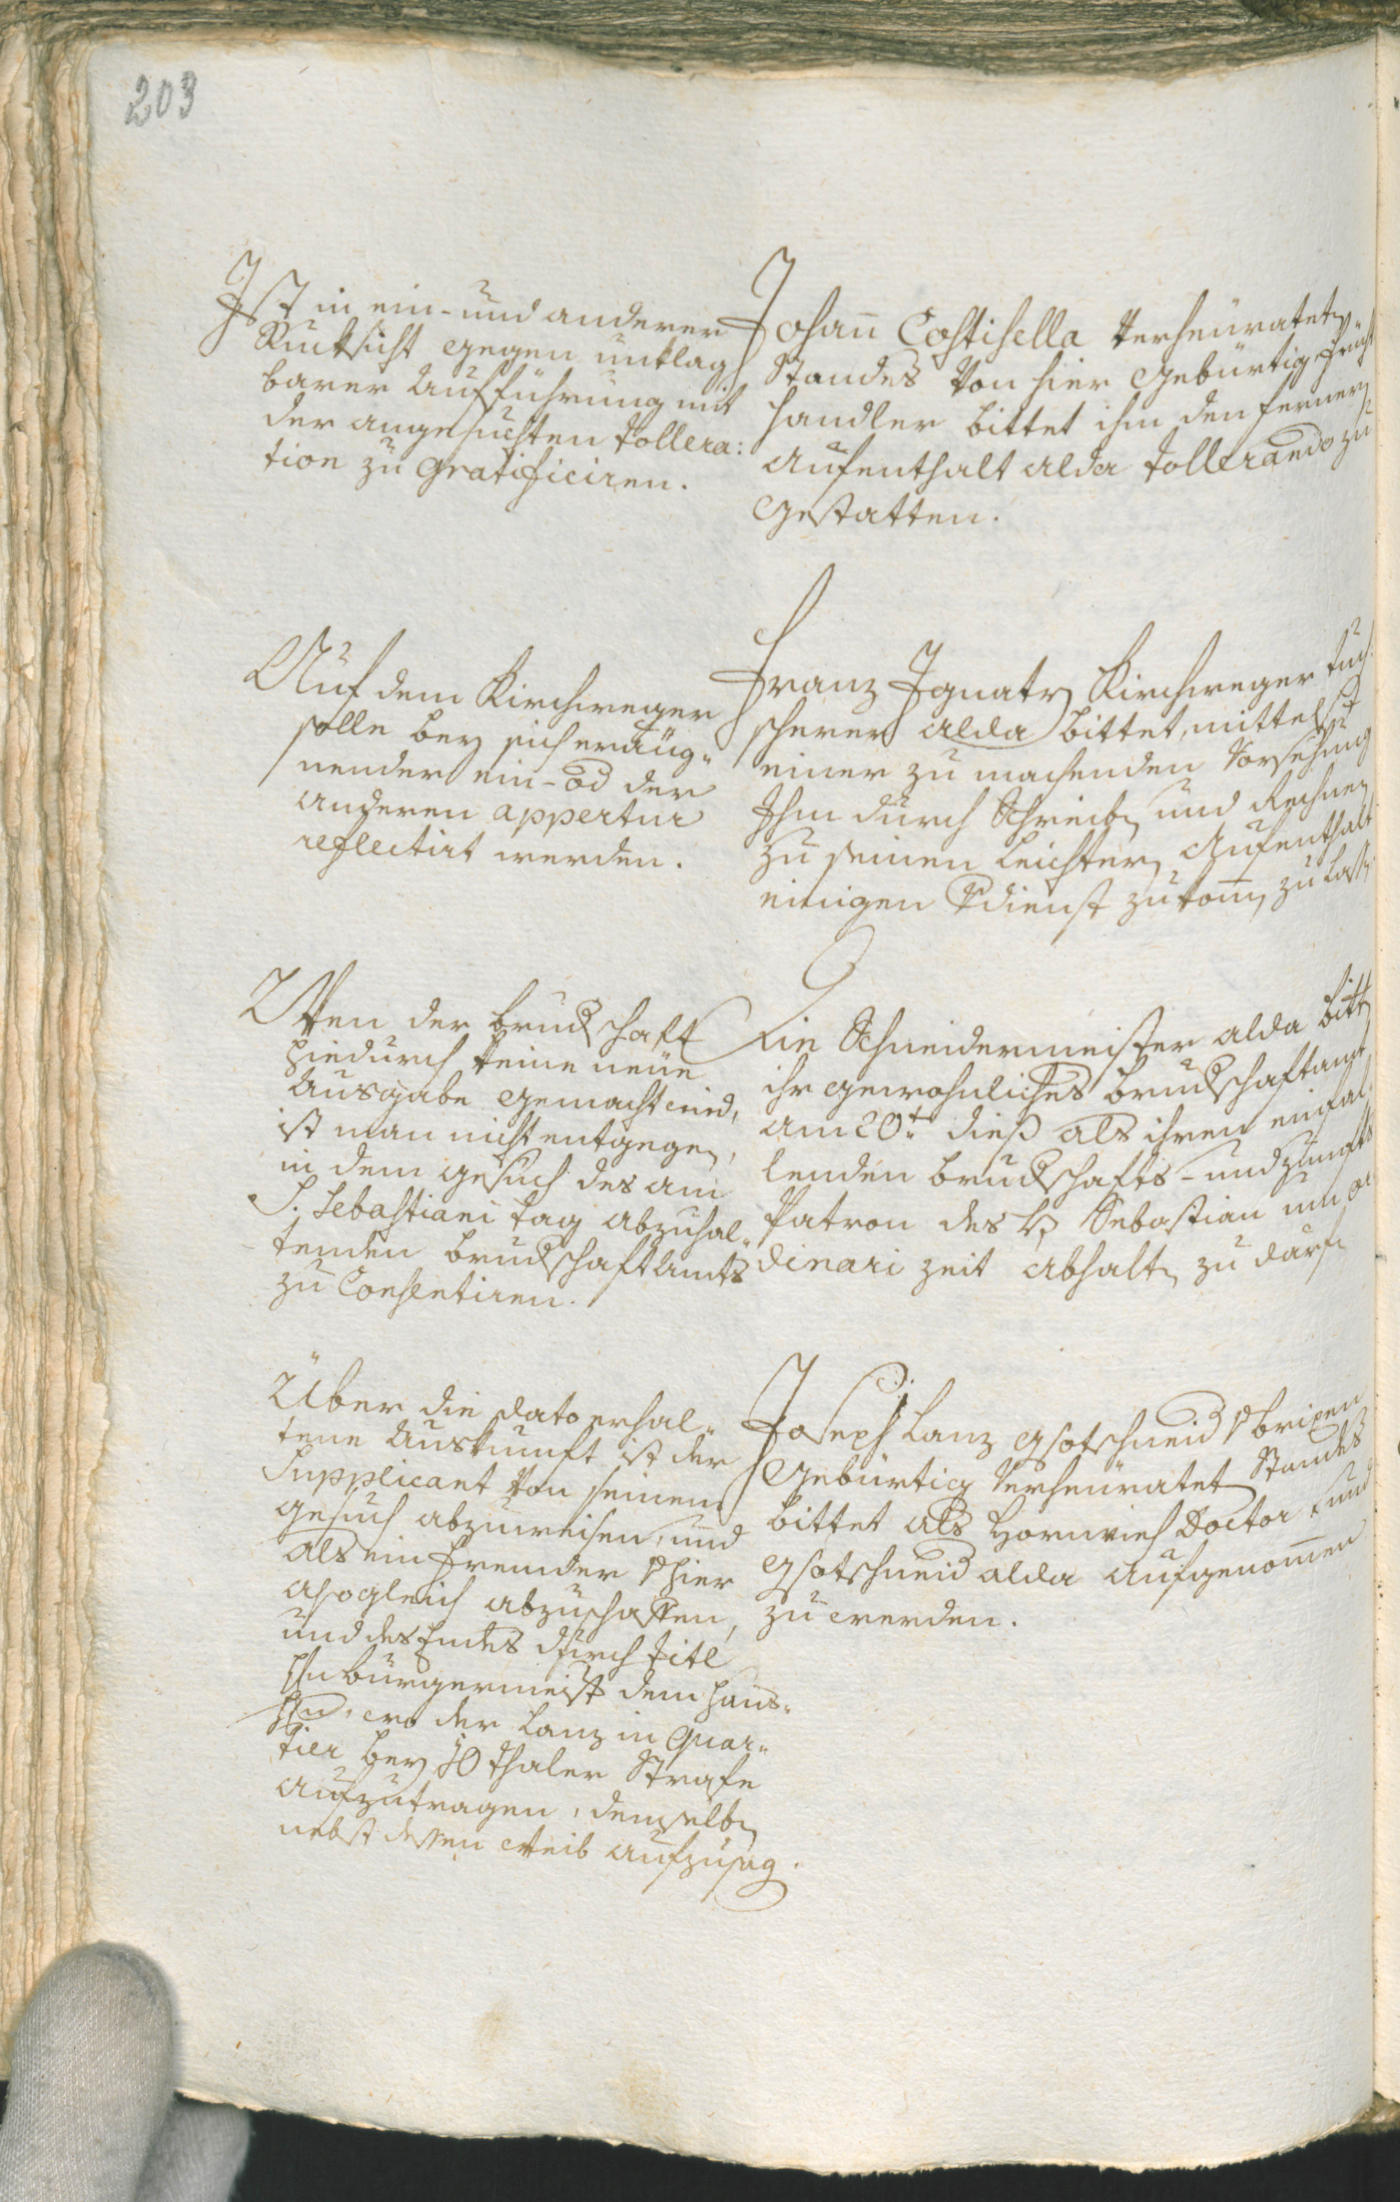 203
Ist in ein- und anderer
Rucksicht gegen unklag
barer Aufführung mit
der angesuchten Tollera:
tion zu gratificiren.
Johann Costisella verheuraten
Standes von hier gebürtig Frucht
handler bittet ihm den fernern
Aufenthalt alda tollerando zu
gestatten.
Auf dem Kirchweger
solle bey sich eräüg„
nender ein- od der
anderen appertur
reflectirt werden.
Franz Ignatz Kirchweger Tuch
scherer alda bittet, mittelst
einer zu machenden Vorsehung
Ihm durch Schreiben und Rechnen
zu seinen leichtern Aufenthalt
einigen Verdienst zukomen zu lassen
Wen der bruderschaft
hiedurch keine neue
Ausgabe gemacht wird,
ist man nicht entgegen,
in dem gesuch des am
S. Sebastiani tag abzuhal„
tenden bruderschaft Amts
zu Consentiren.
Die Schneidermeister alda bitten
ihr gewohnliches bruderschaftamt
am 20t. dieß als ihren einfal
lenden bruderschafts- und zunfts
Patron des H. Sebastian um or
dinari zeit abhalten zu därfen
Über die dato erhal„
tene Auskunft ist der
Supplicant von seinem
gesuch abzuweisen, und
als ein fremder von hier
alsogleich abzuschaffen,
und des Endes durch Titl
Hn bürgermeister dem Haus„
Hrn, wo der Lanz in Quar„
tier bey 10 thaler Strafe
aufzutragen, demselben
nebst dessen Weib aufzusagen.
Joseph Lanz Gsotschneider von brixen
gebürtig verheuratet Standes
bittet als Hornvieh Doctor und
Gsotschneider alda aufgenommen
zu werden.